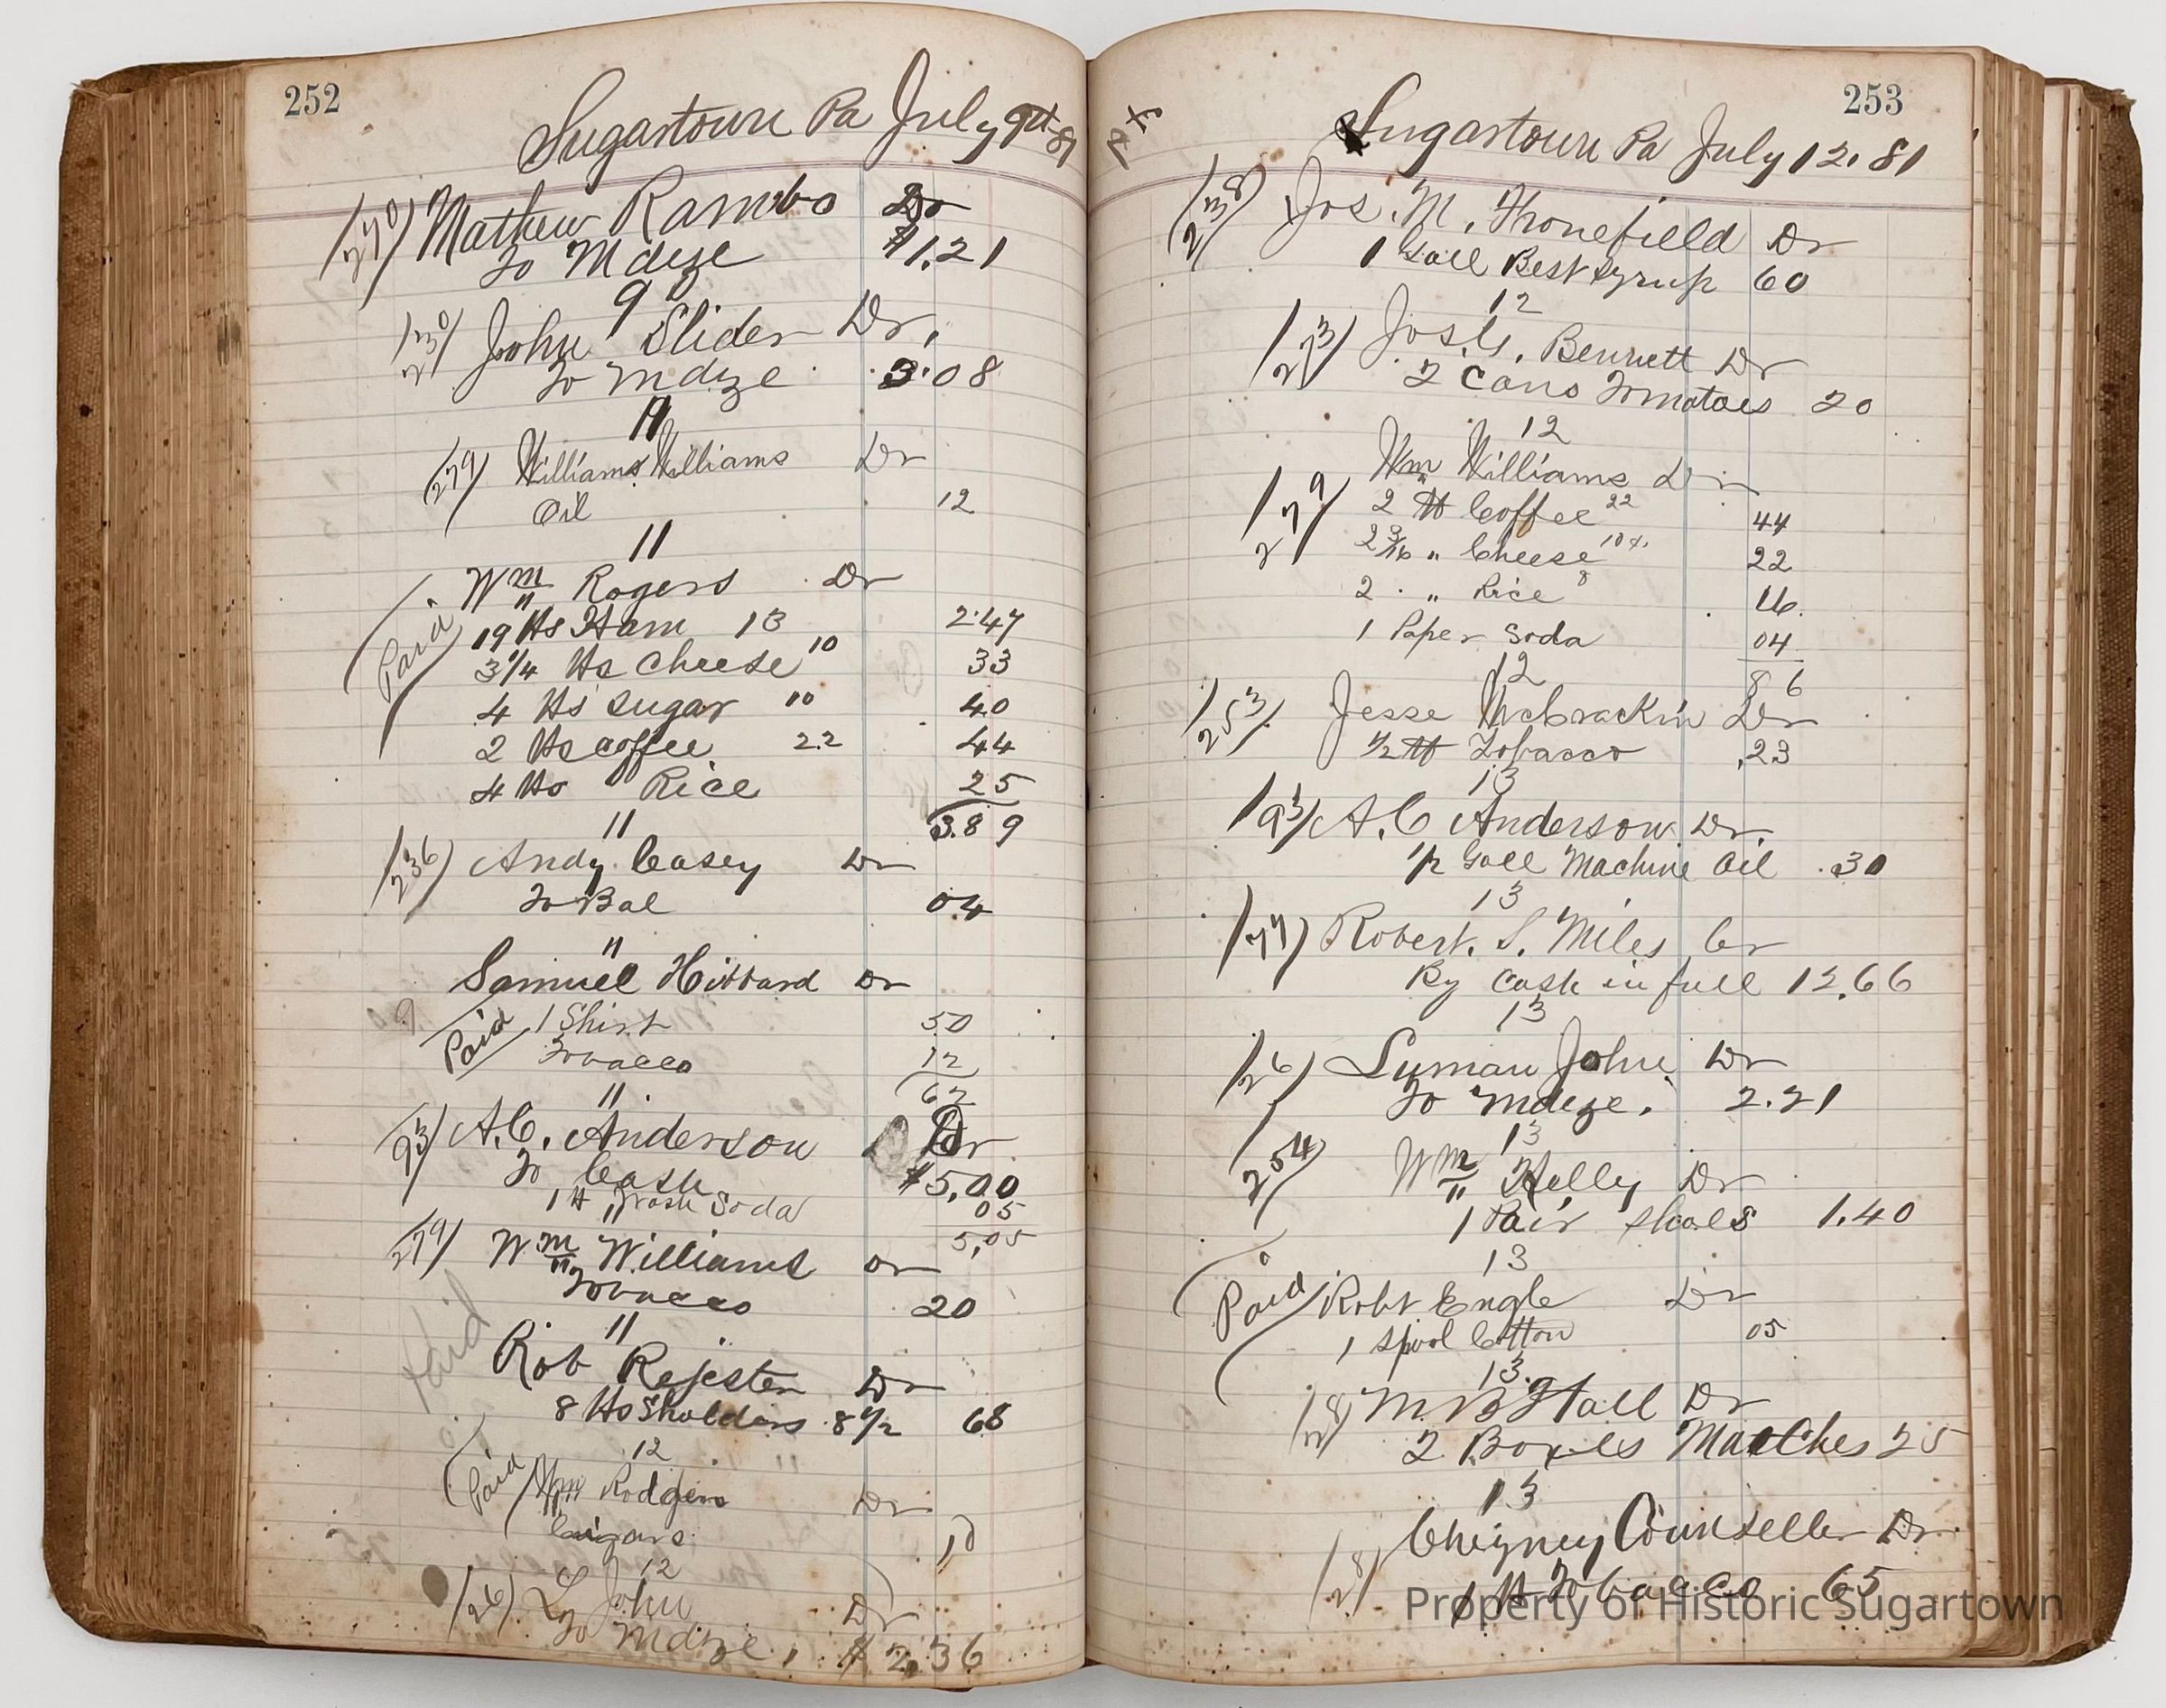 252
Sugartown Pa July 9th 81
270 Mathew Rambo Dr
To Mdze $1.21
9
230 John Slider Dr.
To Mdze 3.08
11
279 Williams Williams Dr
Oil 12
11
Wm Rogers Dr
Paid
19 lbs Ham 13 2.47
3 1/4 lbs Cheese 10 33
4 lbs Sugar 10 40
2 lbs coffee 22 44
4 lbs Rice 25
3.89
11
236 Andy Casey Dr
To Bal 04
11
Samuel Hibbard Dr
Paid 1 Shirt 50
Tobacco 12
62
11
93 A.C. Anderson Dr
To Cash $5.00
1 lb Wash Soda 05
5,05
11
279 Wm Williams Dr
Tobacco 20
11
Paid
Rob Dr
8 lbs Sholders 8 1/2 68
12
Paid Wm Rodgers Dr
Cigars ,10
12
26 Ly John Dr
To Mdze, $2,36
253
Sugartown Pa July 12. 81
238 Jos. M. Thonefield Dr
1 Gall Best Syrup 60
12
273 Bennett Dr
2 Cans Tomatoes 20
12
Wm Williams Dr
279
2 lb Coffee 22 44
2 3/16 " Cheese 10 22
2 " Rice 8 16
1 Paper Soda 04
86
12
253 Jesse McCrackin Dr
1/2 lb Tobacco .23
13
93 A.C Anderson Dr.
1/2 Gall Machine Oil .30
13
77 Robert. S. Miles Cr
By Cash in full 12.66
13
26 Lyman John Dr
To Mdze. 2.21
13
254 Wm Kelly Dr
1 Pair Shoes 1.40
13
Paid Robt Engle Dr
1 Spool Cotton 05
13
28 M. B Hall Dr
2 Boxes Matches 25
13
Cheyney Counseller Dr
28 1 lb Tobacco 65
Property of Historic Sugartown